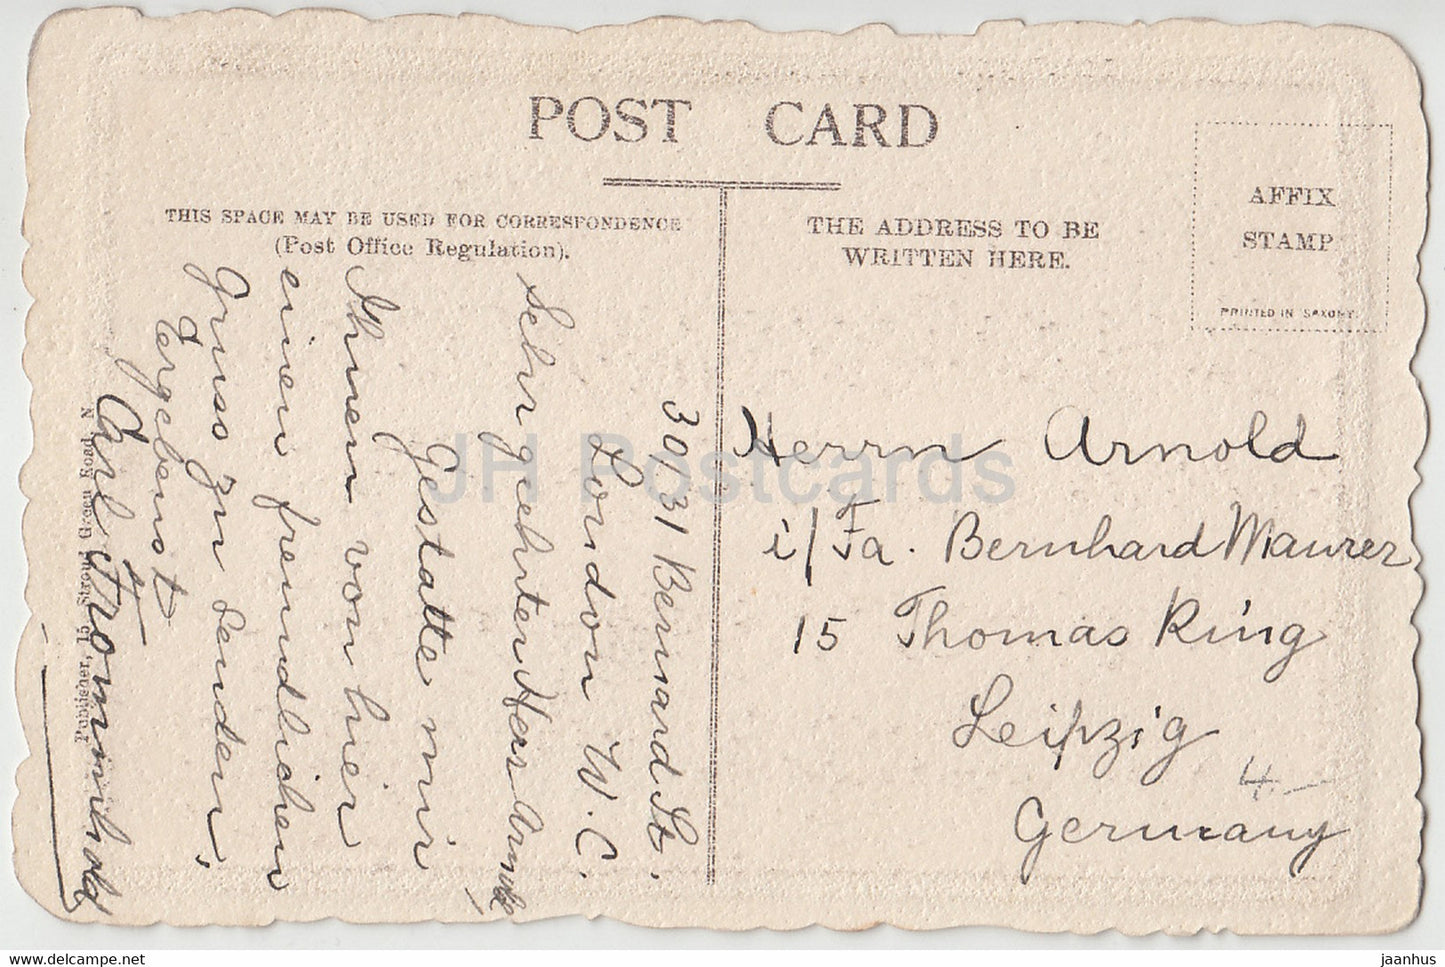 POST CARD
THIS SPACE MAY BE USED FOR CORRESPONDENCE
(Post Office Regulation).
THE ADDRESS TO BE
WRITTEN HERE.
AFFIX
STAMP
PRINTED IN SAXONY.
30/31 Bernard St.
London W. C.
Sehr geehrter Herr Arnold
Gestatte mir
Ihnen von hier
einen freundlichen
Gruss zu senden,
Ergebenst
Carl Frommhold
Herrn Arnold
i/Fa. Bernhard Maurer
15 Thomas Ring
Leipzig
Germany
4.-
Publisher, 15 Stroud Green Road N
JH Postcards
www.delcampe.net
jaanhus